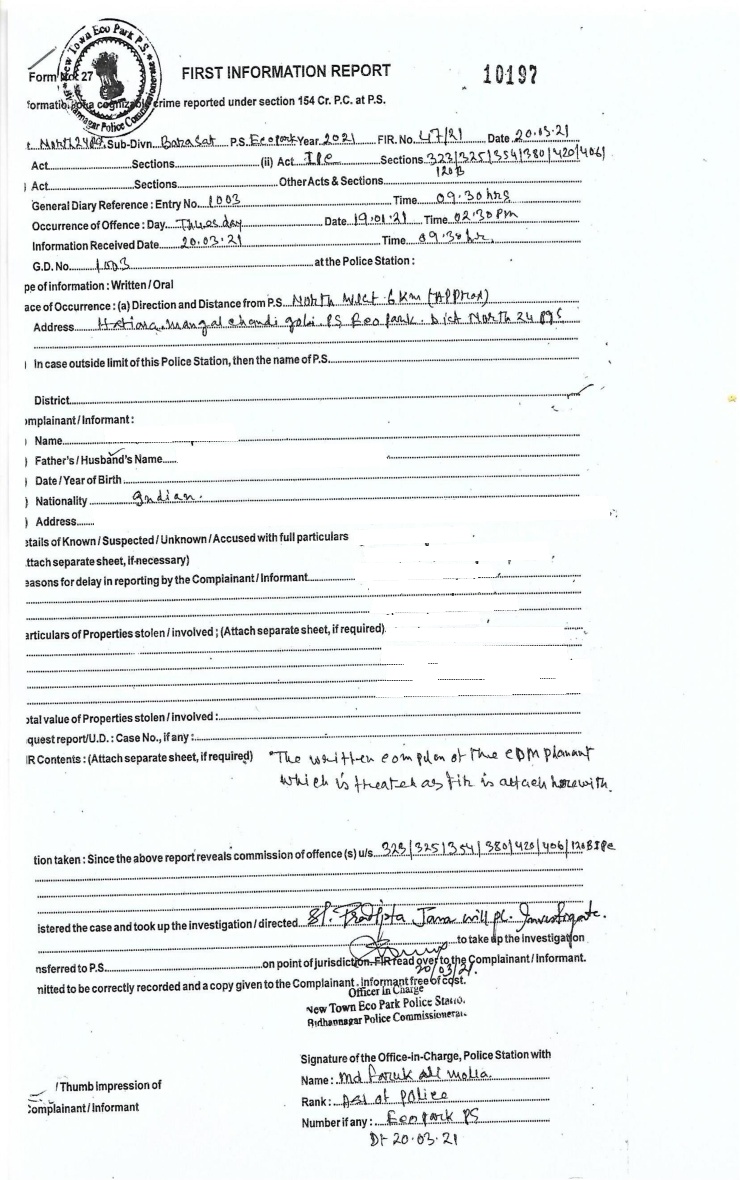 New Town Eco Park P.S.
Bidhannagar Police Commissionerate
Form No. 27
FIRST INFORMATION REPORT
10197
formation of a cognizable crime reported under section 154 Cr. P.C. at P.S.
t. North 24 Pgs. Sub-Divn. Barasat P.S. Ecopark Year 2021 FIR. No. 47/21 Date 20.03.21
Act Sections (ii) Act IPC Sections 323/325/354/380/420/406/
120B
) Act Sections Other Acts & Sections
General Diary Reference : Entry No. 1003 Time 09.30 hrs
Occurrence of Offence : Day Thuesday Date 19.01.21 Time 02.30 PM
Information Received Date 20.03.21 Time 09.30 hr.
G.D. No. 1003 at the Police Station :
pe of information : Written / Oral
ace of Occurrence : (a) Direction and Distance from P.S. North West 6 Km (Approx)
Address Hatiara Mangal chandi goli PS Eco park. Dist North 24 Pgs
) In case outside limit of this Police Station, then the name of P.S.
District
omplainant / Informant :
) Name
) Father's / Husband's Name
) Date / Year of Birth
) Nationality Indian.
) Address
etails of Known / Suspected / Unknown / Accused with full particulars
ttach separate sheet, if necessary)
easons for delay in reporting by the Complainant / Informant
articulars of Properties stolen / involved ; (Attach separate sheet, if required)
otal value of Properties stolen / involved :
quest report/U.D. : Case No., if any :
IR Contents : (Attach separate sheet, if required) "The written complen of the complanant
which is treated as fir is attach herewith.
tion taken : Since the above report reveals commission of offence (s) u/s. 323/325/354/380/420/406/120B IPC
istered the case and took up the investigation / directed SI. Pradipta Jana will pl. Investigate.
to take up the investigation
nsferred to P.S. on point of jurisdiction. FIR read over to the Complainant / Informant.
20/03/21.
mitted to be correctly recorded and a copy given to the Complainant. Informant free of cost.
Officer in Charge
New Town Eco Park Police Station.
Bidhannagar Police Commissionerate
Signature of the Office-in-Charge, Police Station with
/ Thumb impression of
Name : Md Faruk Ali Molla.
Complainant / Informant
Rank : ASI of Police
Number if any : Ecopark PS
Dt 20.03.21